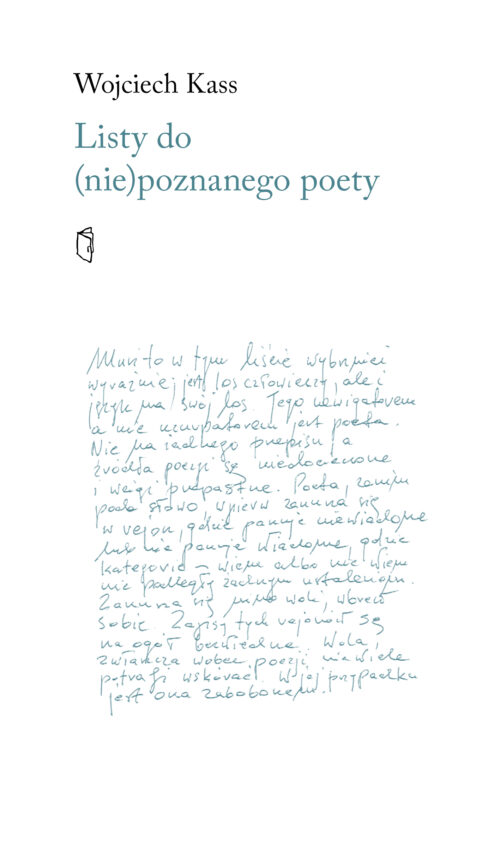 Wojciech Kass
Listy do
(nie)poznanego poety
Musi to w tym liście wybrzmieć
wyraźniej, jest los człowieczy, ale i
język ma swój los. Jego nawigatorem
a nie uzurpatorem jest poeta.
Nie ma żadnego przepisu, a
źródła poezji są niedocieczone
i wciąż przepastne. Poeta, zanim
poda słowo, wpierw zanurza się
w rejon, gdzie panuje niewiadome
lub nie panuje wiadome, gdzie
kategorie – wiem albo nie wiem
nie podległy żadnym ustaleniom.
Zanurza się mimo woli, wbrew
sobie. Zapisy tych rejonów są
na ogół bezwiedne. Wola,
zwłaszcza wobec poezji niewiele
potrafi wskórać. W jej przypadku
jest ona zabobonem.